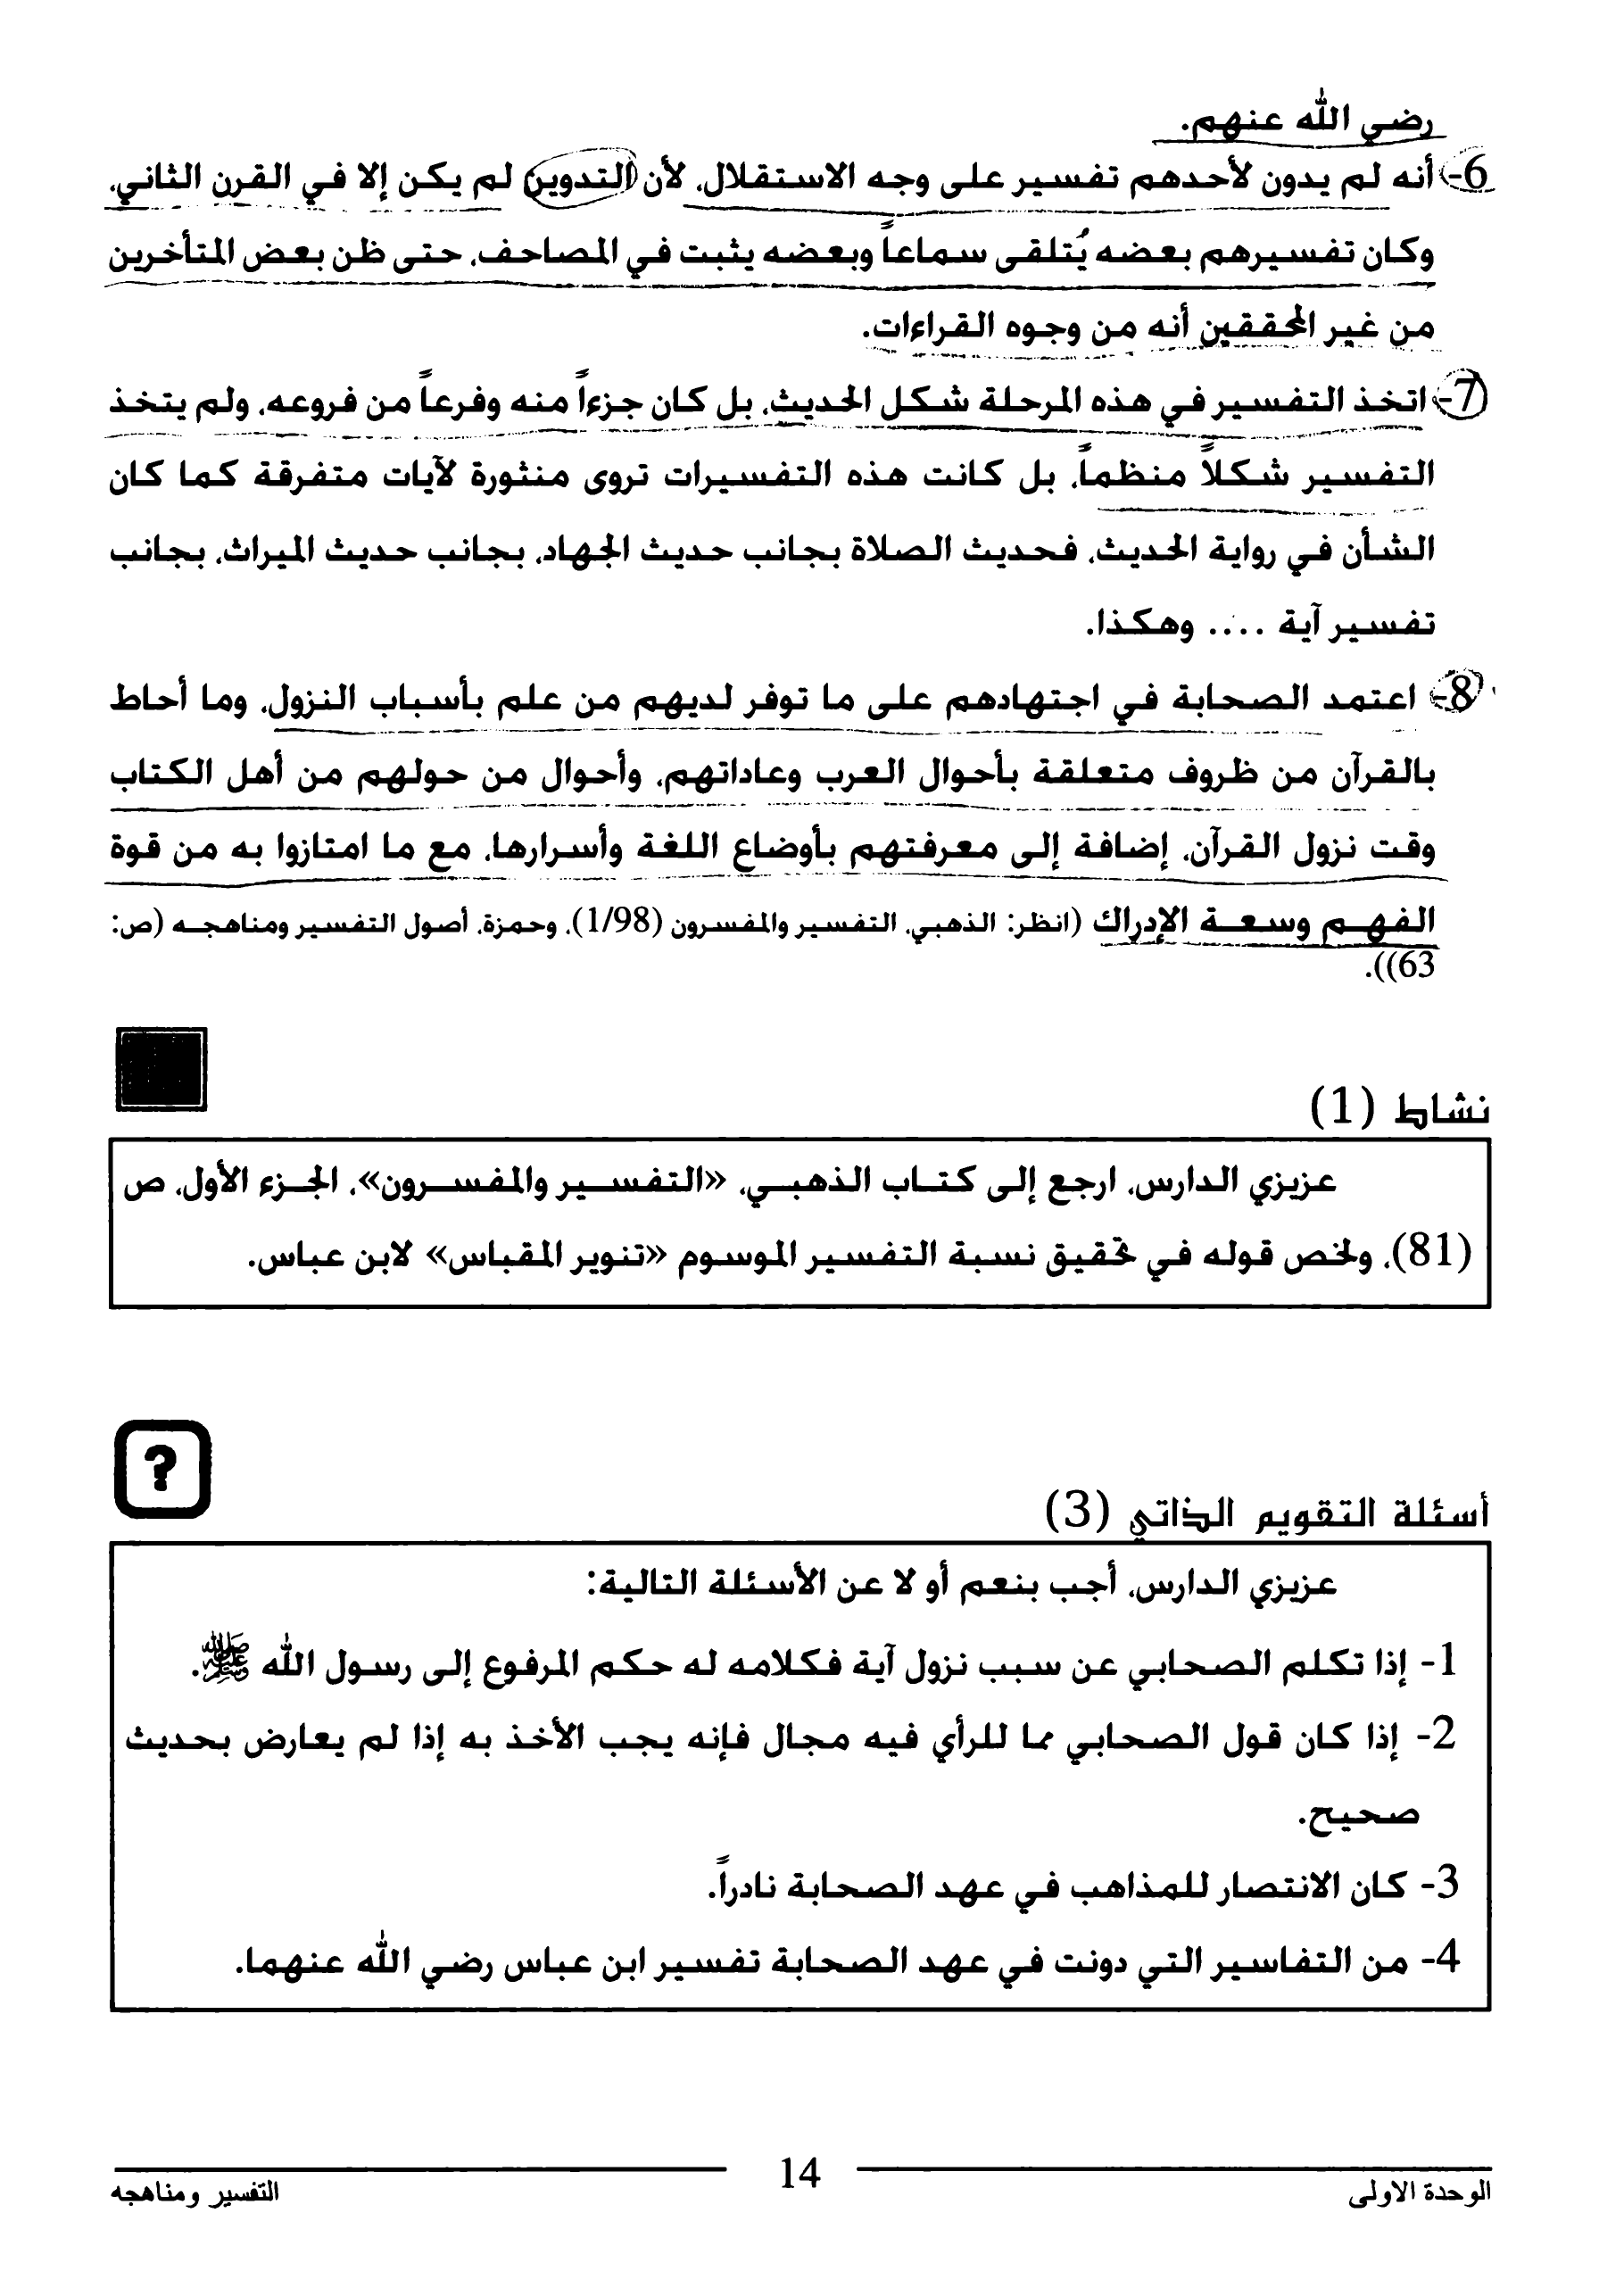 رضي الله عنهم.
6- أنه لم يدون لأحدهم تفسير على وجه الاستقلال، لأن التدوين لم يكن إلا في القرن الثاني،
وكان تفسيرهم بعضه يُتلقى سماعاً وبعضه يثبت في المصاحف، حتى ظن بعض المتأخرين
من غير المحققين أنه من وجوه القراءات.
7- اتخذ التفسير في هذه المرحلة شكل الحديث، بل كان جزءاً منه وفرعاً من فروعه، ولم يتخذ
التفسير شكلاً منظماً، بل كانت هذه التفسيرات تروى منثورة لآيات متفرقة كما كان
الشأن في رواية الحديث، فحديث الصلاة بجانب حديث الجهاد، بجانب حديث الميراث، بجانب
تفسير آية .... وهكذا.
8- اعتمد الصحابة في اجتهادهم على ما توفر لديهم من علم بأسباب النزول، وما أحاط
بالقرآن من ظروف متعلقة بأحوال العرب وعاداتهم، وأحوال من حولهم من أهل الكتاب
وقت نزول القرآن، إضافة إلى معرفتهم بأوضاع اللغة وأسرارها، مع ما امتازوا به من قوة
الفهم وسعة الإدراك (انظر: الذهبي، التفسير والمفسرون (1/98)، وحمزة، أصول التفسير ومناهجه (ص:
63)).
نشاط (1)
عزيزي الدارس، ارجع إلى كتاب الذهبي، «التفسير والمفسرون»، الجزء الأول، ص
(81)، ولخص قوله في تحقيق نسبة التفسير الموسوم «تنوير المقباس» لابن عباس.
?
أسئلة التقويم الذاتي (3)
عزيزي الدارس، أجب بنعم أو لا عن الأسئلة التالية:
1- إذا تكلم الصحابي عن سبب نزول آية فكلامه له حكم المرفوع إلى رسول الله ﷺ.
2- إذا كان قول الصحابي مما للرأي فيه مجال فإنه يجب الأخذ به إذا لم يعارض بحديث
صحيح.
3- كان الانتصار للمذاهب في عهد الصحابة نادراً.
4- من التفاسير التي دونت في عهد الصحابة تفسير ابن عباس رضي الله عنهما.
الوحدة الاولى
14
التفسير ومناهجه